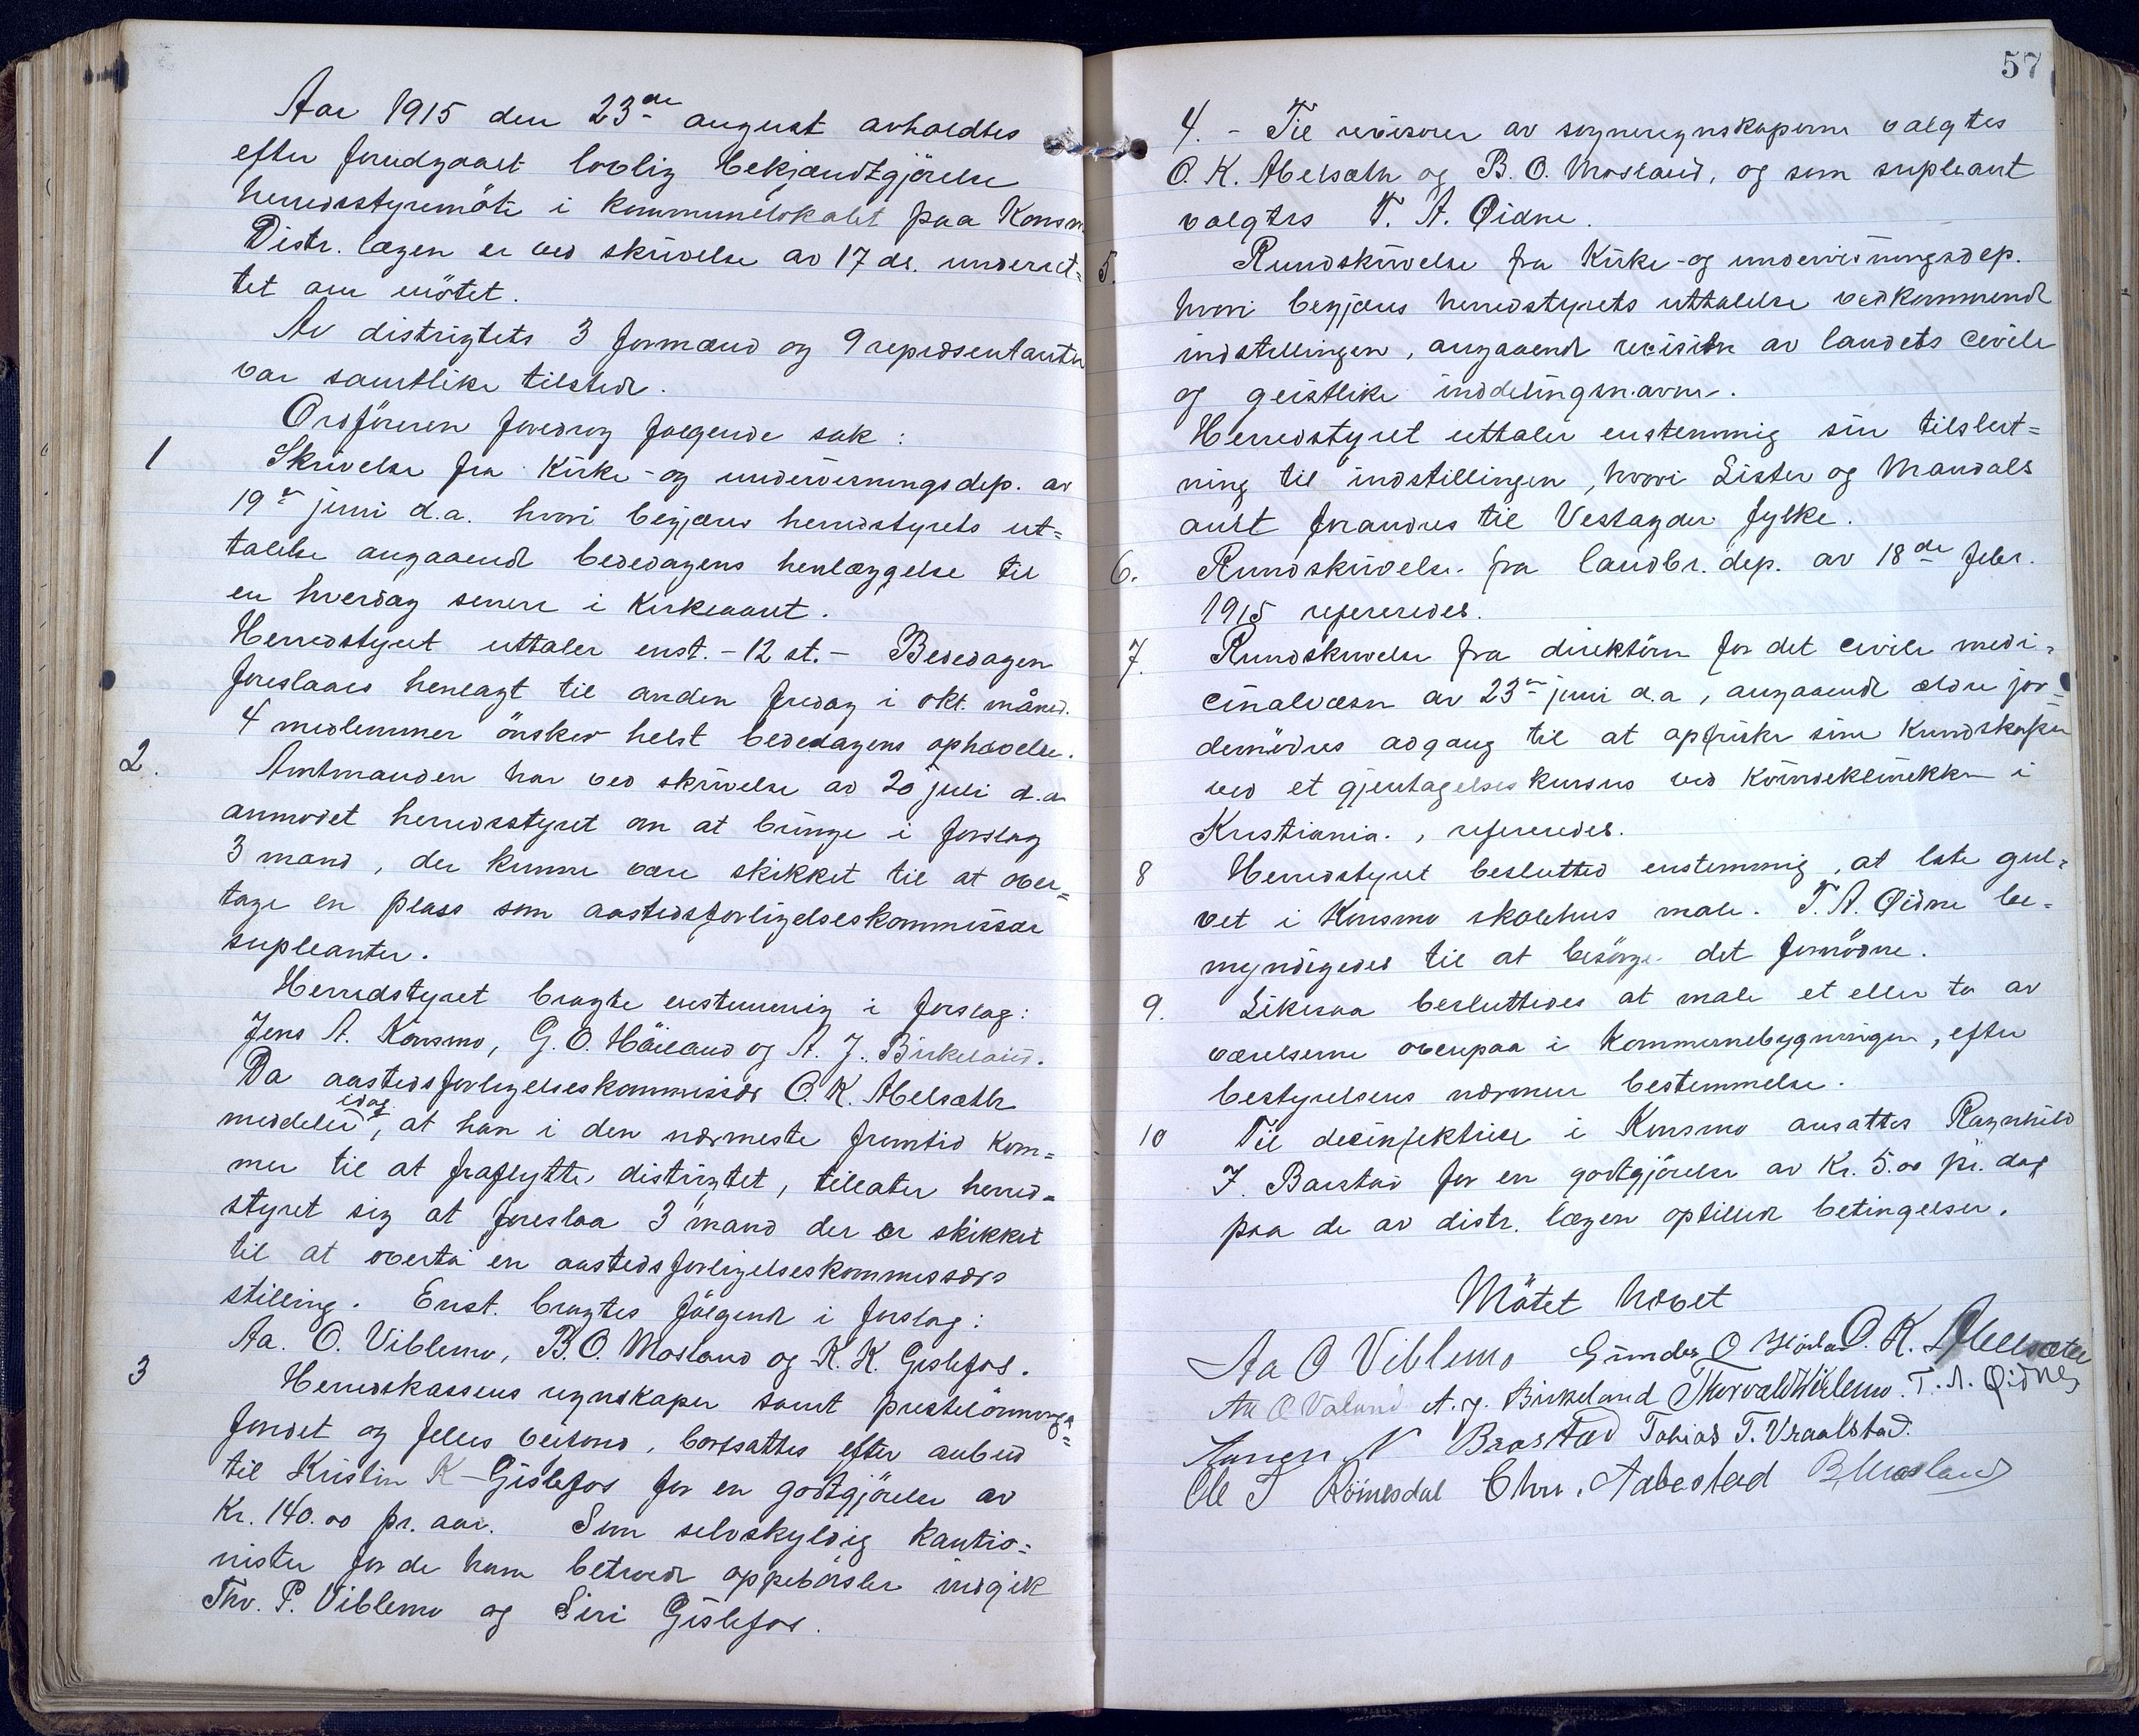 Aar 1915 den 23de august avholdtes
efter forudgaaet lovlig bekjendtgjörelse
herredsstyremöte i kommunelokalet paa Konsmo
Distr. lægen er ved skrivelse av 17 ds. underret=
tet om mötet.
Av distrigtets 3 formænd og 9 repræsentanter
var samtlike tilstede.
Ordföreren foredrog følgende sak:
1 Skrivelse fra Kirke- og undervisningsdep. av
19de juni d.a. hvori begjæres herredstyrets ut=
talelse angaaende bededagens henlæggelse til
en hverdag senere i Kirkeaaret.
Herredstyret uttaler enst. - 12 st. - Bededagen
foreslaaes henlagt til anden fredag i okt. måned.
4 medlemmer önsker helst bededagens ophævelse.
2. Amtmanden har ved skrivelse av 20 juli d.a
anmodet herredsstyret om at bringe i forslag
3 mand, der kunne være skikket til at over=
tage en plass som aastedsforligelseskommissær
supleanter.
Herredstyret bragte enstemmig i forslag:
Jens A. Konsmo, G. O. Höiland og A. J. Birkeland.
Da aastedsforligelseskommissær O. K. Abelsæth
idag
meddeler, at han i den nærmeste fremtid kom=
mer til at fraflytte distrigtet, tillater herred=
styret sig at foreslaa 3 mand der er skikket
til at overta en aastedsforligelseskommissærs
stilling. Enst. bragtes fölgende i forslag:
Aa. O. Viblemo, B. O. Mosland og K. K. Gislefos.
3 Herredskassens regnskaper samt prestelönnings=
fondet og felles veifond, bortsattes efter anbud
til Kristin K Gislefos for en godtgjörelse av
Kr. 140.00 pr. aar. Som selvskyldig kautio=
nister for de ham betroede oppebörsler indgik
Thv. P. Viblemo og Siri Gislefos.
57
4. - Til revisorer av sogneregnskaperne valgtes
O. K. Abelsæth og B. O. Mosland, og som supleant
valgtes T. A. Øidne.
5. Rundskrivelse fra Kirke- og undervisningsdep.
hvori begjæres herredstyrets uttalelse vedkommende
indstillingen, angaaende revision av landets civile
og geistlike inddelingsnavne.
Herredstyret uttaler enstemmig sin tilslut=
ning til indstillingen, hvori Lister og Mandals
amt forandres til Vestagder fylke.
6. Rundskrivelse fra landbr. dep. av 18de febr.
1915 refereredes.
7. Rundskrivelse fra direktören for det civile medi=
cinalvæsn av 23de juni d.a, angaaende ældre jor=
demödres adgang til at opfriske sine Kundskaper
ved et gjentagelseskursus ved Kvindeklinikken i
Kristiania., refereredes.
8 Herredstyret beslutted enstemmig, at late gul=
vet i Konsmo skolehus male. T. A. Øidne be=
myndigedes til at besörge det fornödne.
9. Likesaa besluttedes at male et eller to av
værelserne ovenpaa i Kommunebygningen, efter
bestyrelsens nærmere bestemmelse.
10 Til desinfektrice i Konsmo ansattes Ragnhild
J. Barstad for en godtgjörelse av Kr. 5.00 pr. dag
paa de av distr. lægen opstillede betingelser.
Mötet hævet
Aa O Viblemo Gunder O Höiland O. K. Abelsæth
Aa O Valand A. J. Birkeland Thorvald Viblemo. T. A. Øidne
N Baastad Tobias T. Vraalstad.
Ole T Römesdal Chr. Aabestad B Mosland